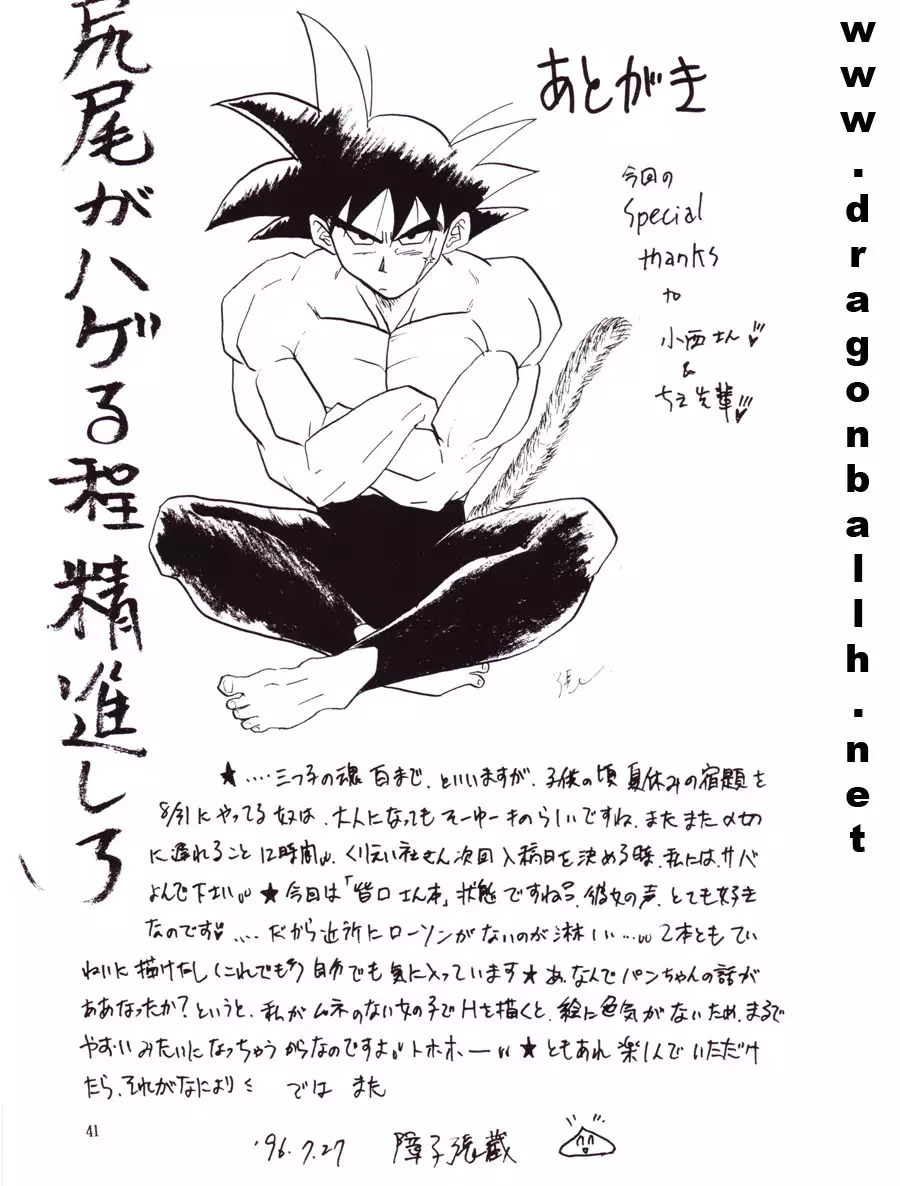 尻尾がハゲる程精進しろ
あとがき
今回の
Special
thanks
to
小西さん
&
ちえ先輩
www.dragonballh.net
★‥‥三つ子の魂百まで、といいますが、子供の頃夏休みの宿題を
8/31にやってる奴は、大人になってもそーゆーものらしいですね、またまた〆切
に遅れること12時間。くりえい社さん次回入稿日を決める時、私には、サバ
よんで下さい。★今回は「皆口さん本」状態ですね 彼女の声、とても好き
なのです‥‥だから近所にローソンがないのが淋しい‥‥2本ともてい
ねいに描けたし(これでも)自分でも気に入っています★あ、なんでパンちゃんの話が
ああなったか?というと、私がムネのない女の子でHを描くと、絵に色気がないため、まるで
やおいみたいになっちゃうからなのですよ トホホー ★ともあれ楽しんでいただけ
たら、それがなにより では また
41
'96.7.27 障子張蔵